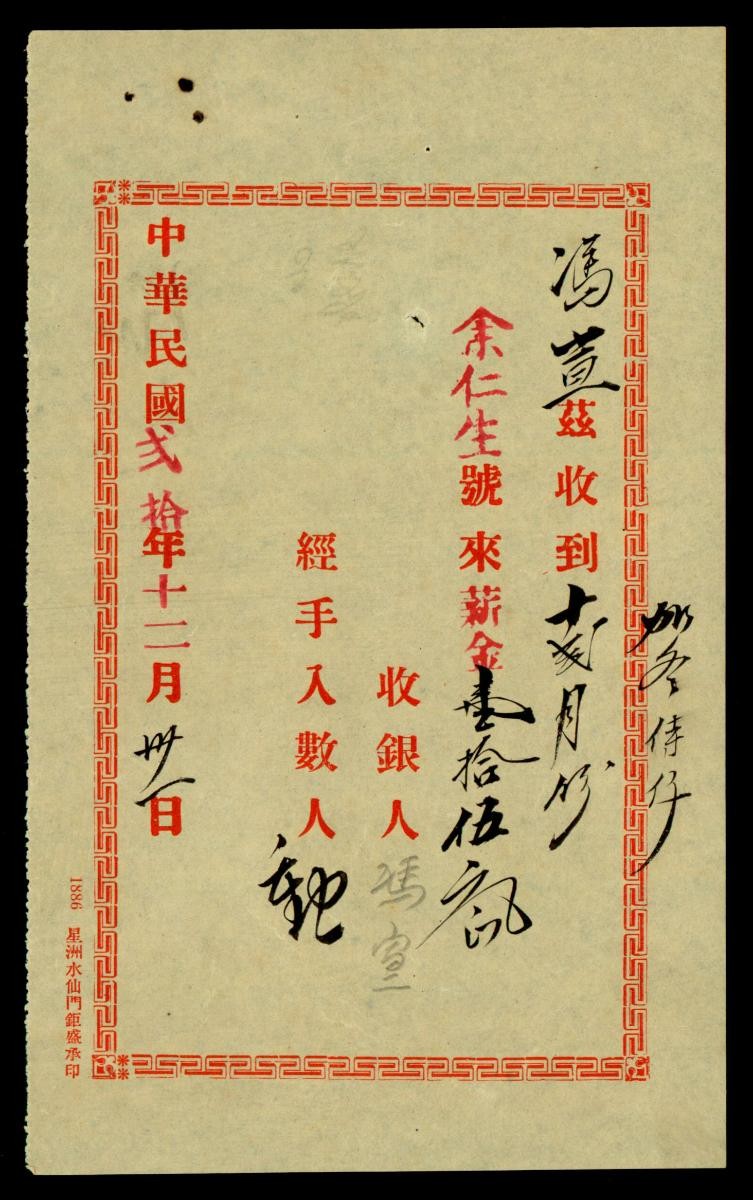 馮宣茲收到十弍月份
余仁生號來薪金壹拾伍
收銀人馮宣
經手入數人
中華民國弍拾年十二月卅一日
1886 星洲水仙門鉅盛承印